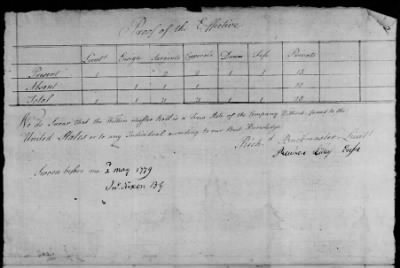 Proof of the Effective
Lieut Ensign Serjeants Corporals Drum Fife Privates
Present 1 2 2 1 1 13
Absent 1 1
Total 1 1 1 1
We do Swear that the Within Muster Roll is a true State of the Company Without fraud to the
United States or to any Individual according to our Best Knowledge
Rich.d Buckmaster Lieut
Ens
Sworn before me 2 may 1779
Jn.o Nixon B G